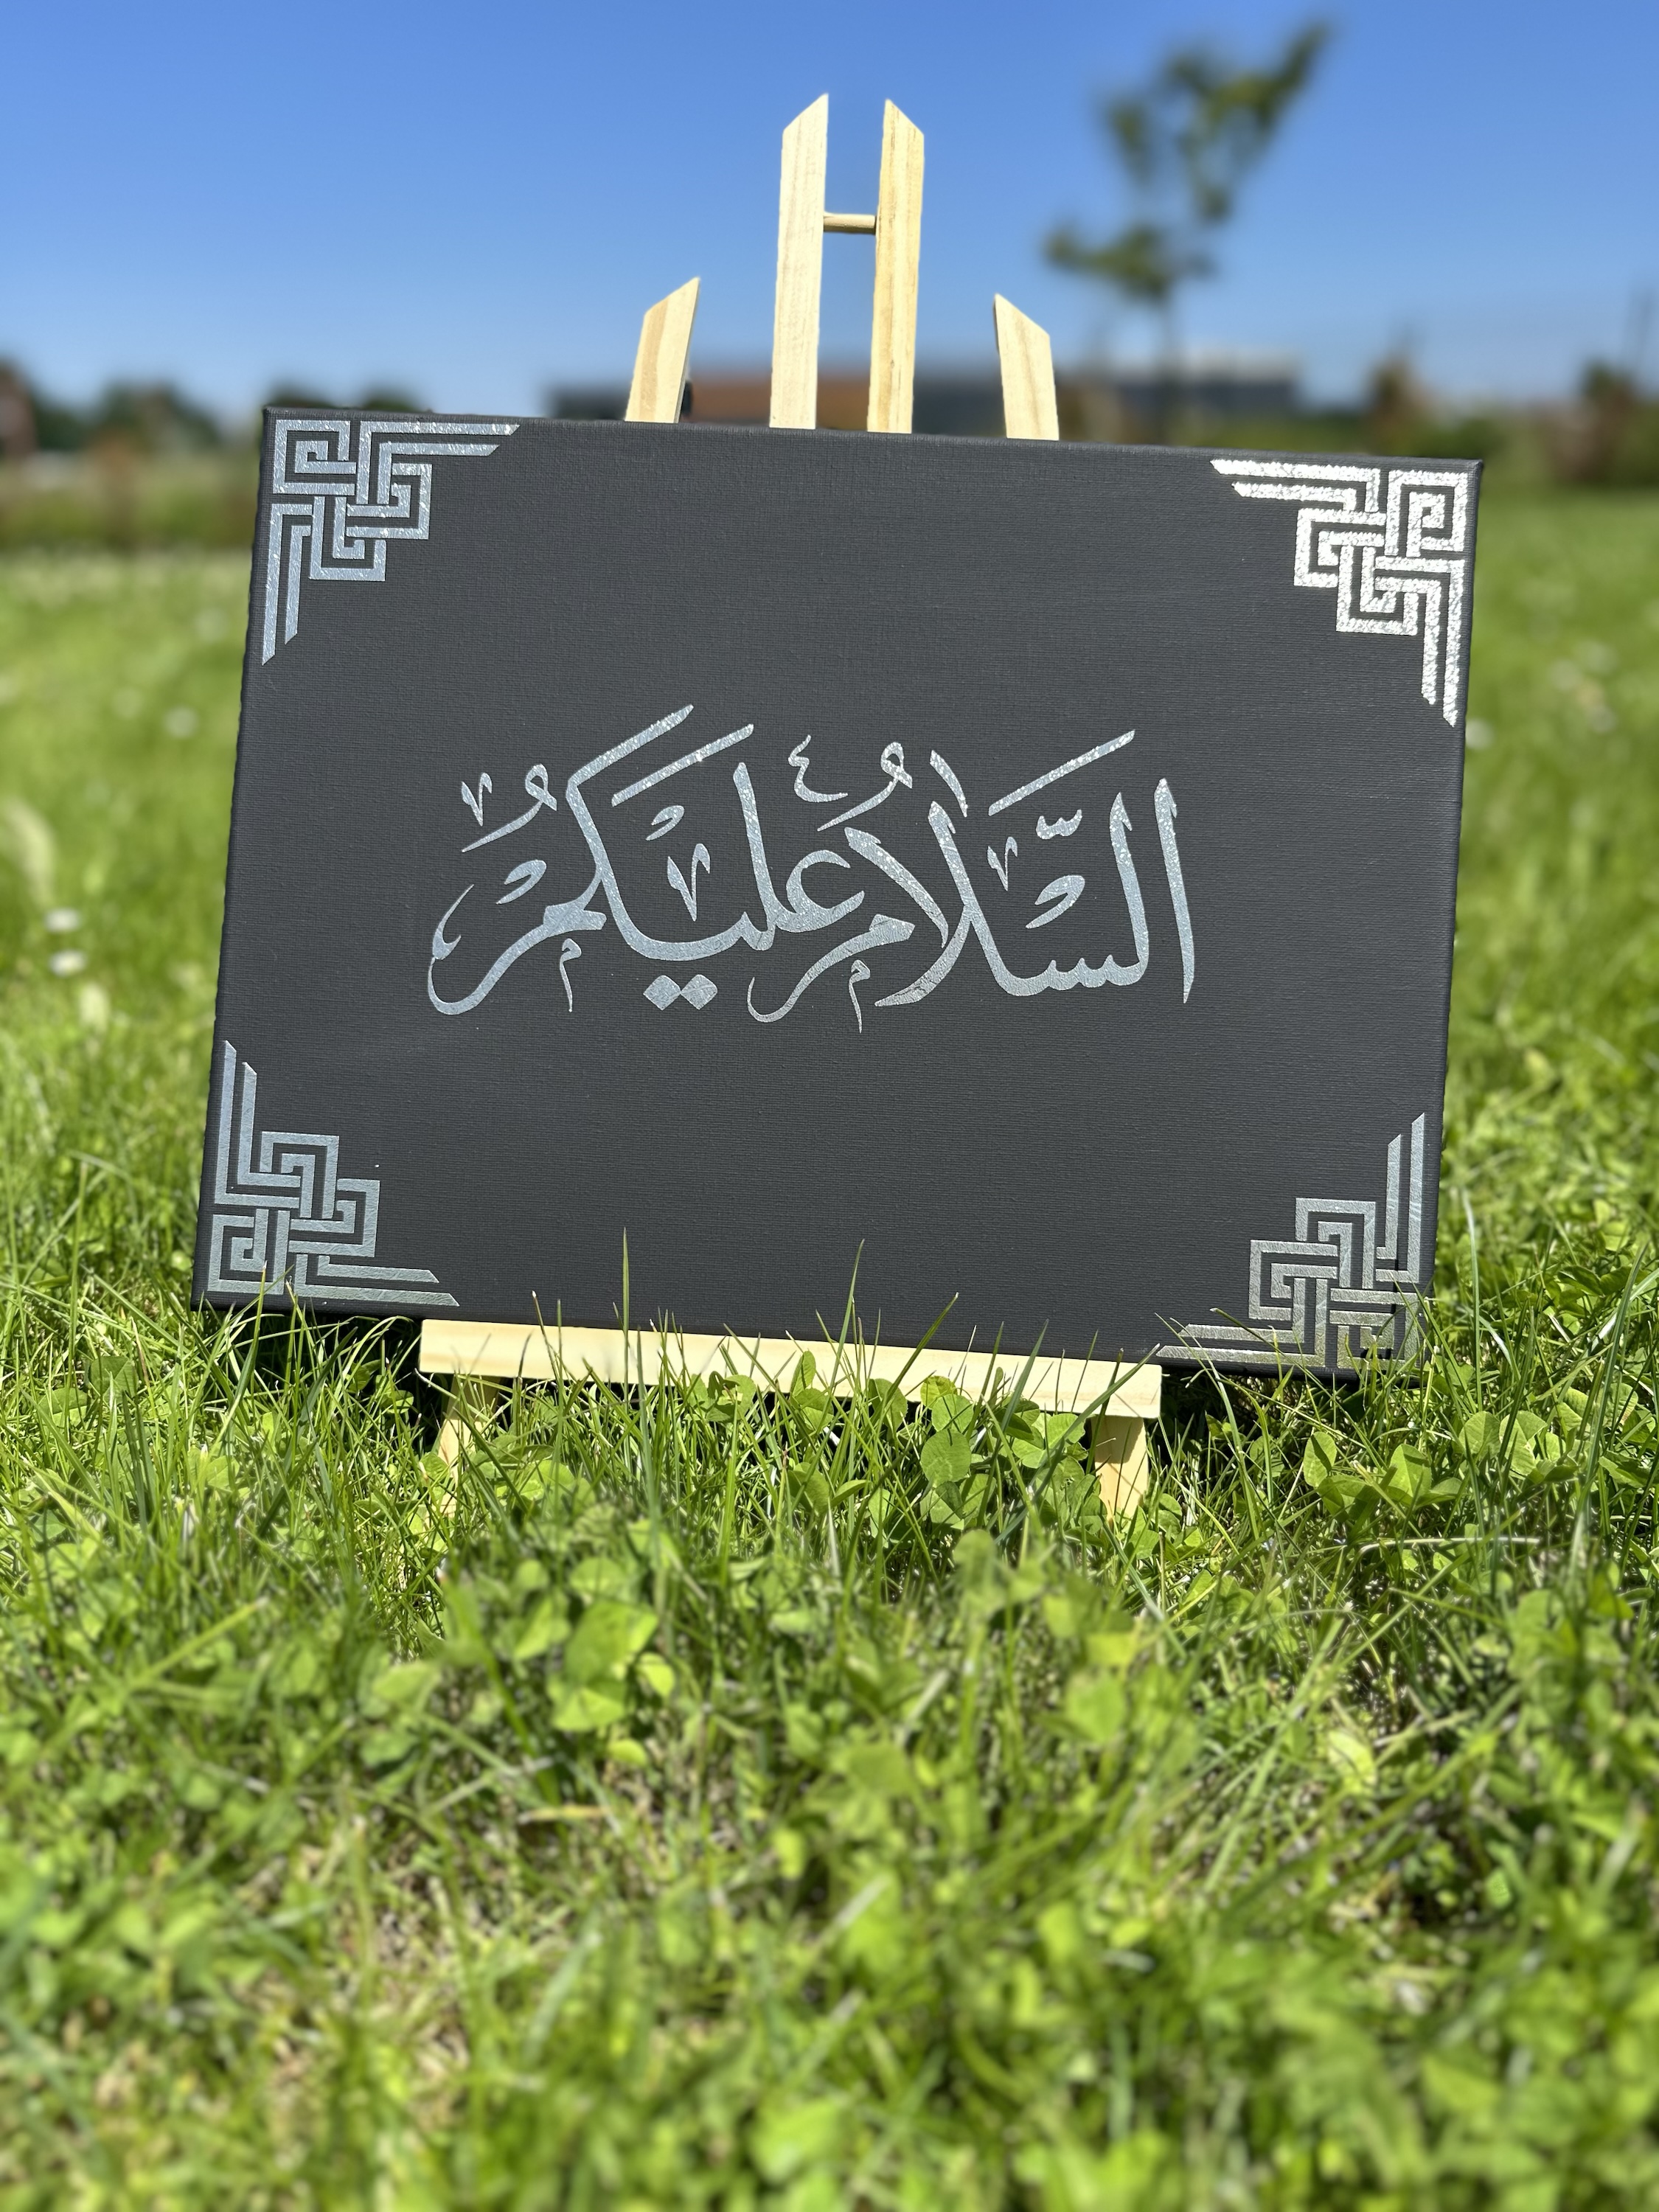 السَّلَامُ عَلَيْكُمُ